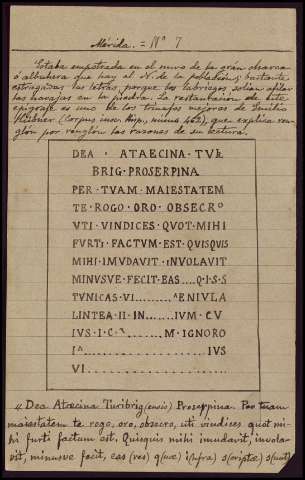 Mérida. = Nº 7
Estaba empotrada en el muro de la gran charca
ó albuhera que hay al N. de la población; bastante
estragadas las letras, porque los labriegos solian afilar
las navajas en la piedra. La restauracion de este
epigrafe es uno de los triunfos mejores de Emilio
Hübner (Corpus inscr. Hisp., núm. 462), quien explica ren-
glón por renglón las razones de su lectura.
DEA · ATAECINA · TVR
BRIG · PROSERPINA
PER · TVAM · MAIESTATEM
TE · ROGO · ORO · OBSECRO
VTI · VINDICES · QVOT · MIHI
FVRTI · FACTVM · EST · QVISQVIS
MIHI · IMVDAVIT · INVOLAVIT
MINVSVE · FECIT · EAS .... Q · I · S · S
TVNICAS · VI ......... AENVLA
LINTEA · II · IN ...... IVM · CV
IVS · I · C ........ M · IGNORO
I^ ............ IVS
VI ..............
« Dea Atæcina Turibrig(ensis) Proserpina. Per tuam
maiestatem te rogo, oro, obsecro, uti vindices quot mi-
hi furti factum est. Quisquis mihi imudavit, involav-
vit, minusve fecit, eas (res) q(uæ) i(nfra) s(criptæ) s(unt)